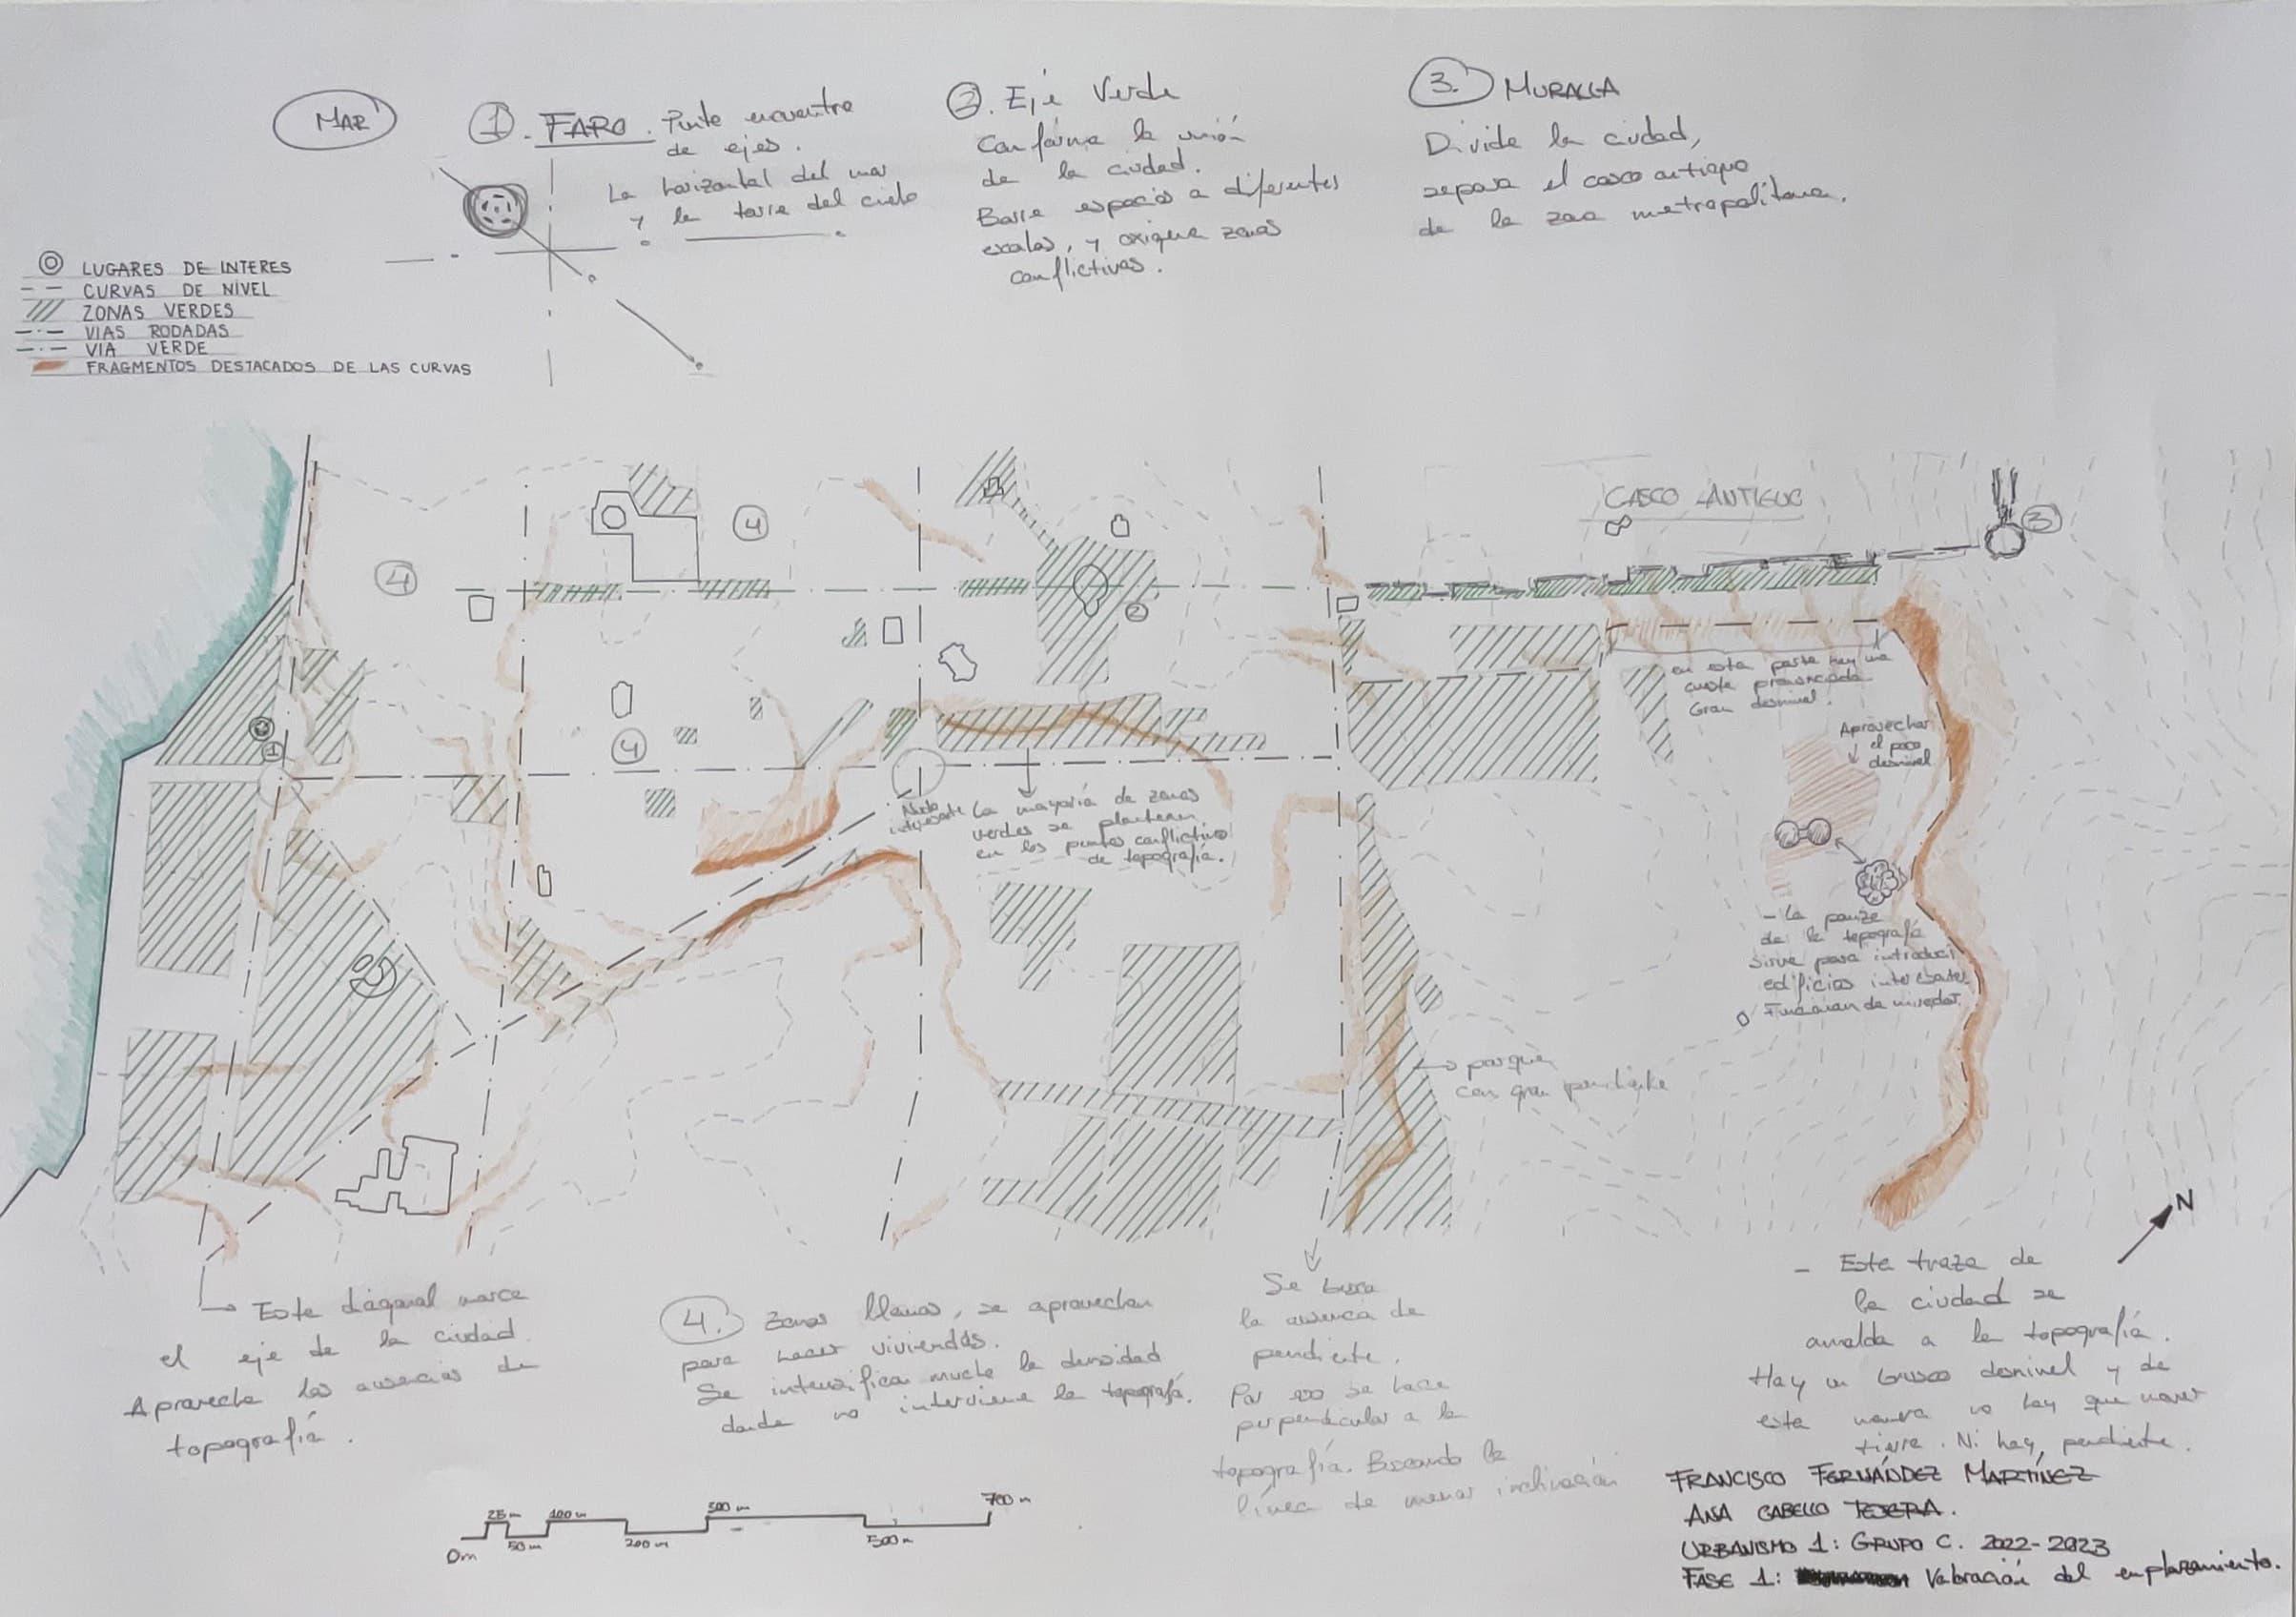 MAR
1. FARO. Punto encuentro
de ejes.
La horizontal del mar
y la torre del cielo
2. Eje Verde
Conforma la unión
de la ciudad.
Barre espacios a diferentes
escalas, y oxigena zonas
conflictivas.
3. MURALLA
Divide la ciudad,
separa el casco antiguo
de la zona metropolitana.
LUGARES DE INTERES
CURVAS DE NIVEL
ZONAS VERDES
VIAS RODADAS
VIA VERDE
FRAGMENTOS DESTACADOS DE LAS CURVAS
CASCO ANTIGUO
3
4
4
2
en esta parte hay una
cuesta pronunciada
Gran desnivel.
Aprovechar
el poco
desnivel
4
1
Nodo
interesante
La mayoría de zonas
verdes se plantean
en los puntos conflictivos
de topografía.
- La pauza
de la topografía
sirve para introducir
edificios interesantes
Funcionan de mirador.
parque
con gran pendiente
N
Esta diagonal marca
el eje de la ciudad.
Aprovecha las ausencias de
topografía.
4. Zonas llanas, se aprovechan
para hacer viviendas.
Se intensifica mucho la densidad
donde no interviene la topografía.
Se busca
la ausencia de
pendiente.
Por eso se hace
perpendicular a la
topografía. Buscando la
línea de menor inclinación
- Esta traza de
la ciudad se
amolda a la topografía.
Hay un brusco desnivel y de
esta manera no hay que mover
tierra. Ni hay pendiente.
0m
25 m
50 m
100 m
200 m
300 m
500 m
700 m
FRANCISCO FERNÁNDEZ MARTÍNEZ
ANA CABELLO TEJERA.
URBANISMO 1: GRUPO C. 2022-2023
FASE 1: Valoración del emplazamiento.